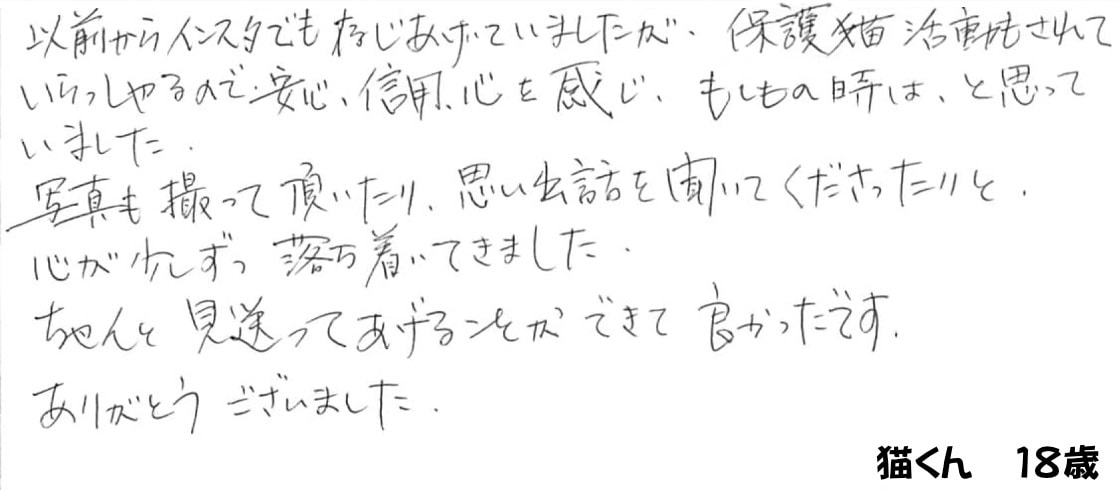 以前からインスタでも存じあげていましたが、保護猫活動もされて
いらっしゃるので、安心、信用、心を感じ、もしもの時は、と思って
いました。
写真も撮って頂いたり、思い出話を聞いてくださったりと、
心が少しずつ落ち着いてきました。
ちゃんと見送ってあげることができて良かったです。
ありがとうございました。
猫くん　18歳